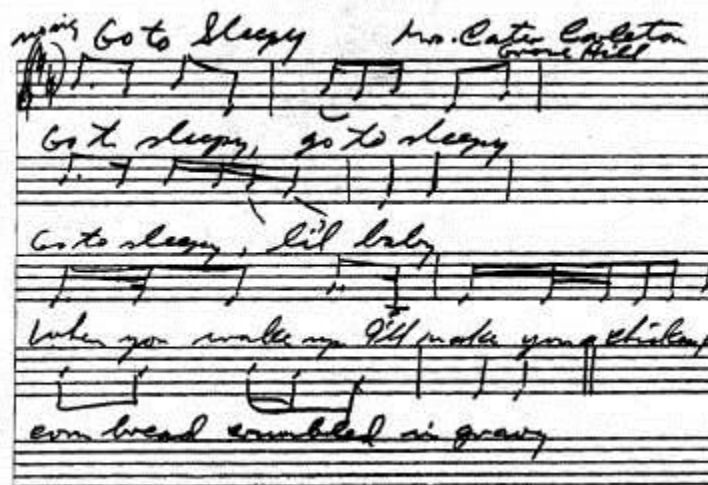 Go to Sleepy Mrs. Cater Carleton
Grove Hill
Go to sleepy, go to sleepy
Go to sleepy, lil baby
When you wake up I'll make you a
corn bread crumbled in gravy